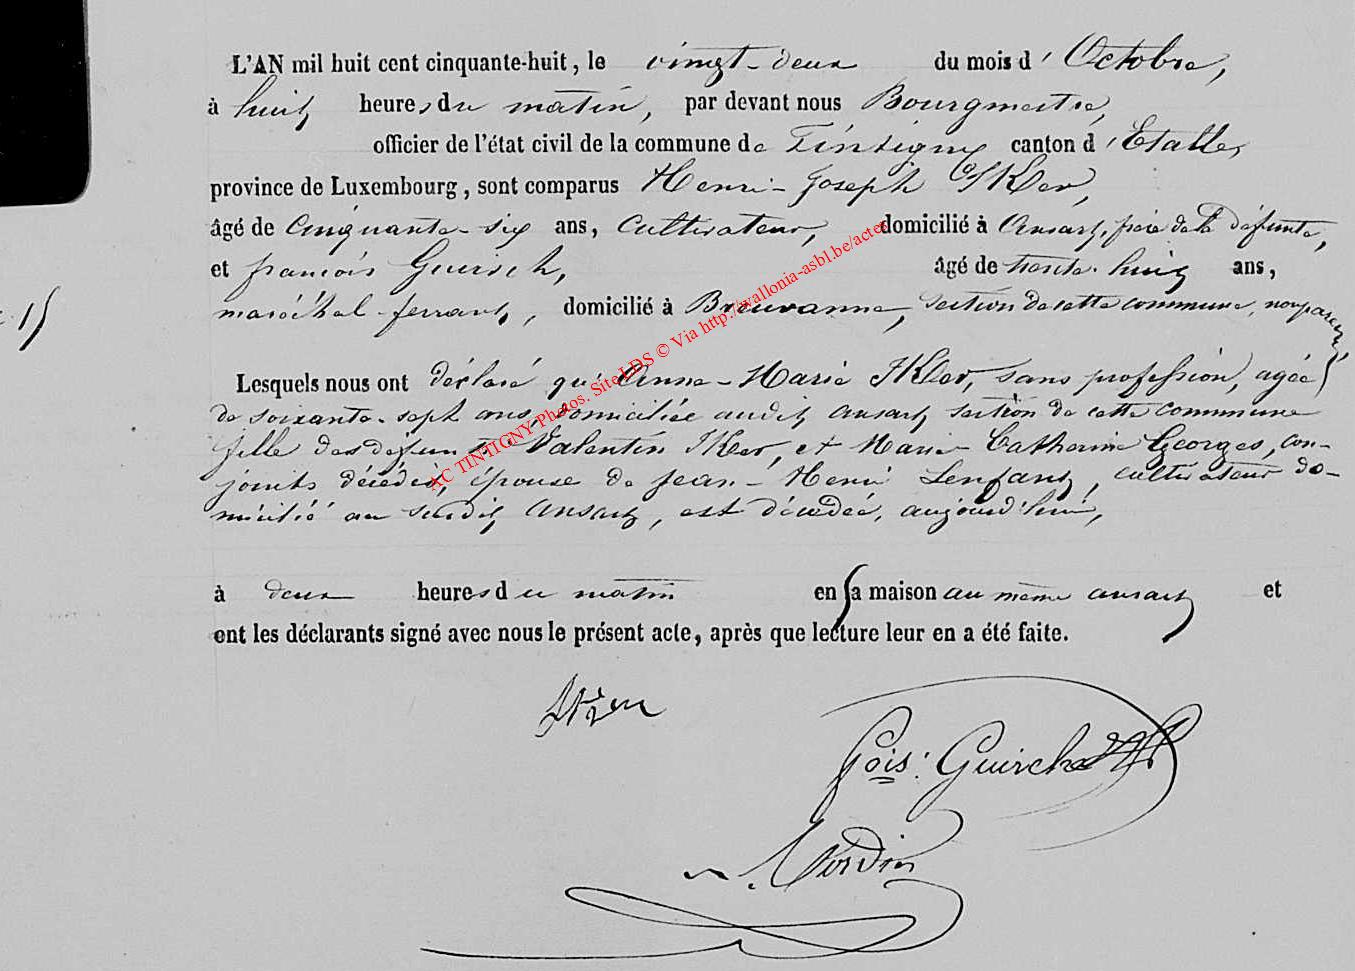 L'AN mil huit cent cinquante-huit, le vingt-deux du mois d'Octobre,
à huit heures du matin, par devant nous Bourgmestre,
officier de l'état civil de la commune de Tintigny canton d'Etalle,
province de Luxembourg, sont comparus Henri-Joseph
âgé de Cinquante-six ans, Cultivateur, domicilié à Ansart, frère de la défunte,
et françois Guirsch, âgé de trente-huit ans,
maréchal-ferrant, domicilié à Breuvanne, section de cette commune, non parent
15
Lesquels nous ont déclaré qu'Anne-Marie sans profession, agée
de soixante-sept ans, domiciliée audit ansart section de cette commune
fille des défunts Valentin et Marie Catherine Georges, con-
joints décédés, épouse de jean-Henri Lenfant, cultivateur do-
micilié au susdit Ansart, est décédée, aujourd'hui,
à deux heures du matin en sa maison au même ansart et
ont les déclarants signé avec nous le présent acte, après que lecture leur en a été faite.
fçois: Guirch
AC TINTIGNY Photos. Site LDS © Via http://wallonia-asbl.be/actes